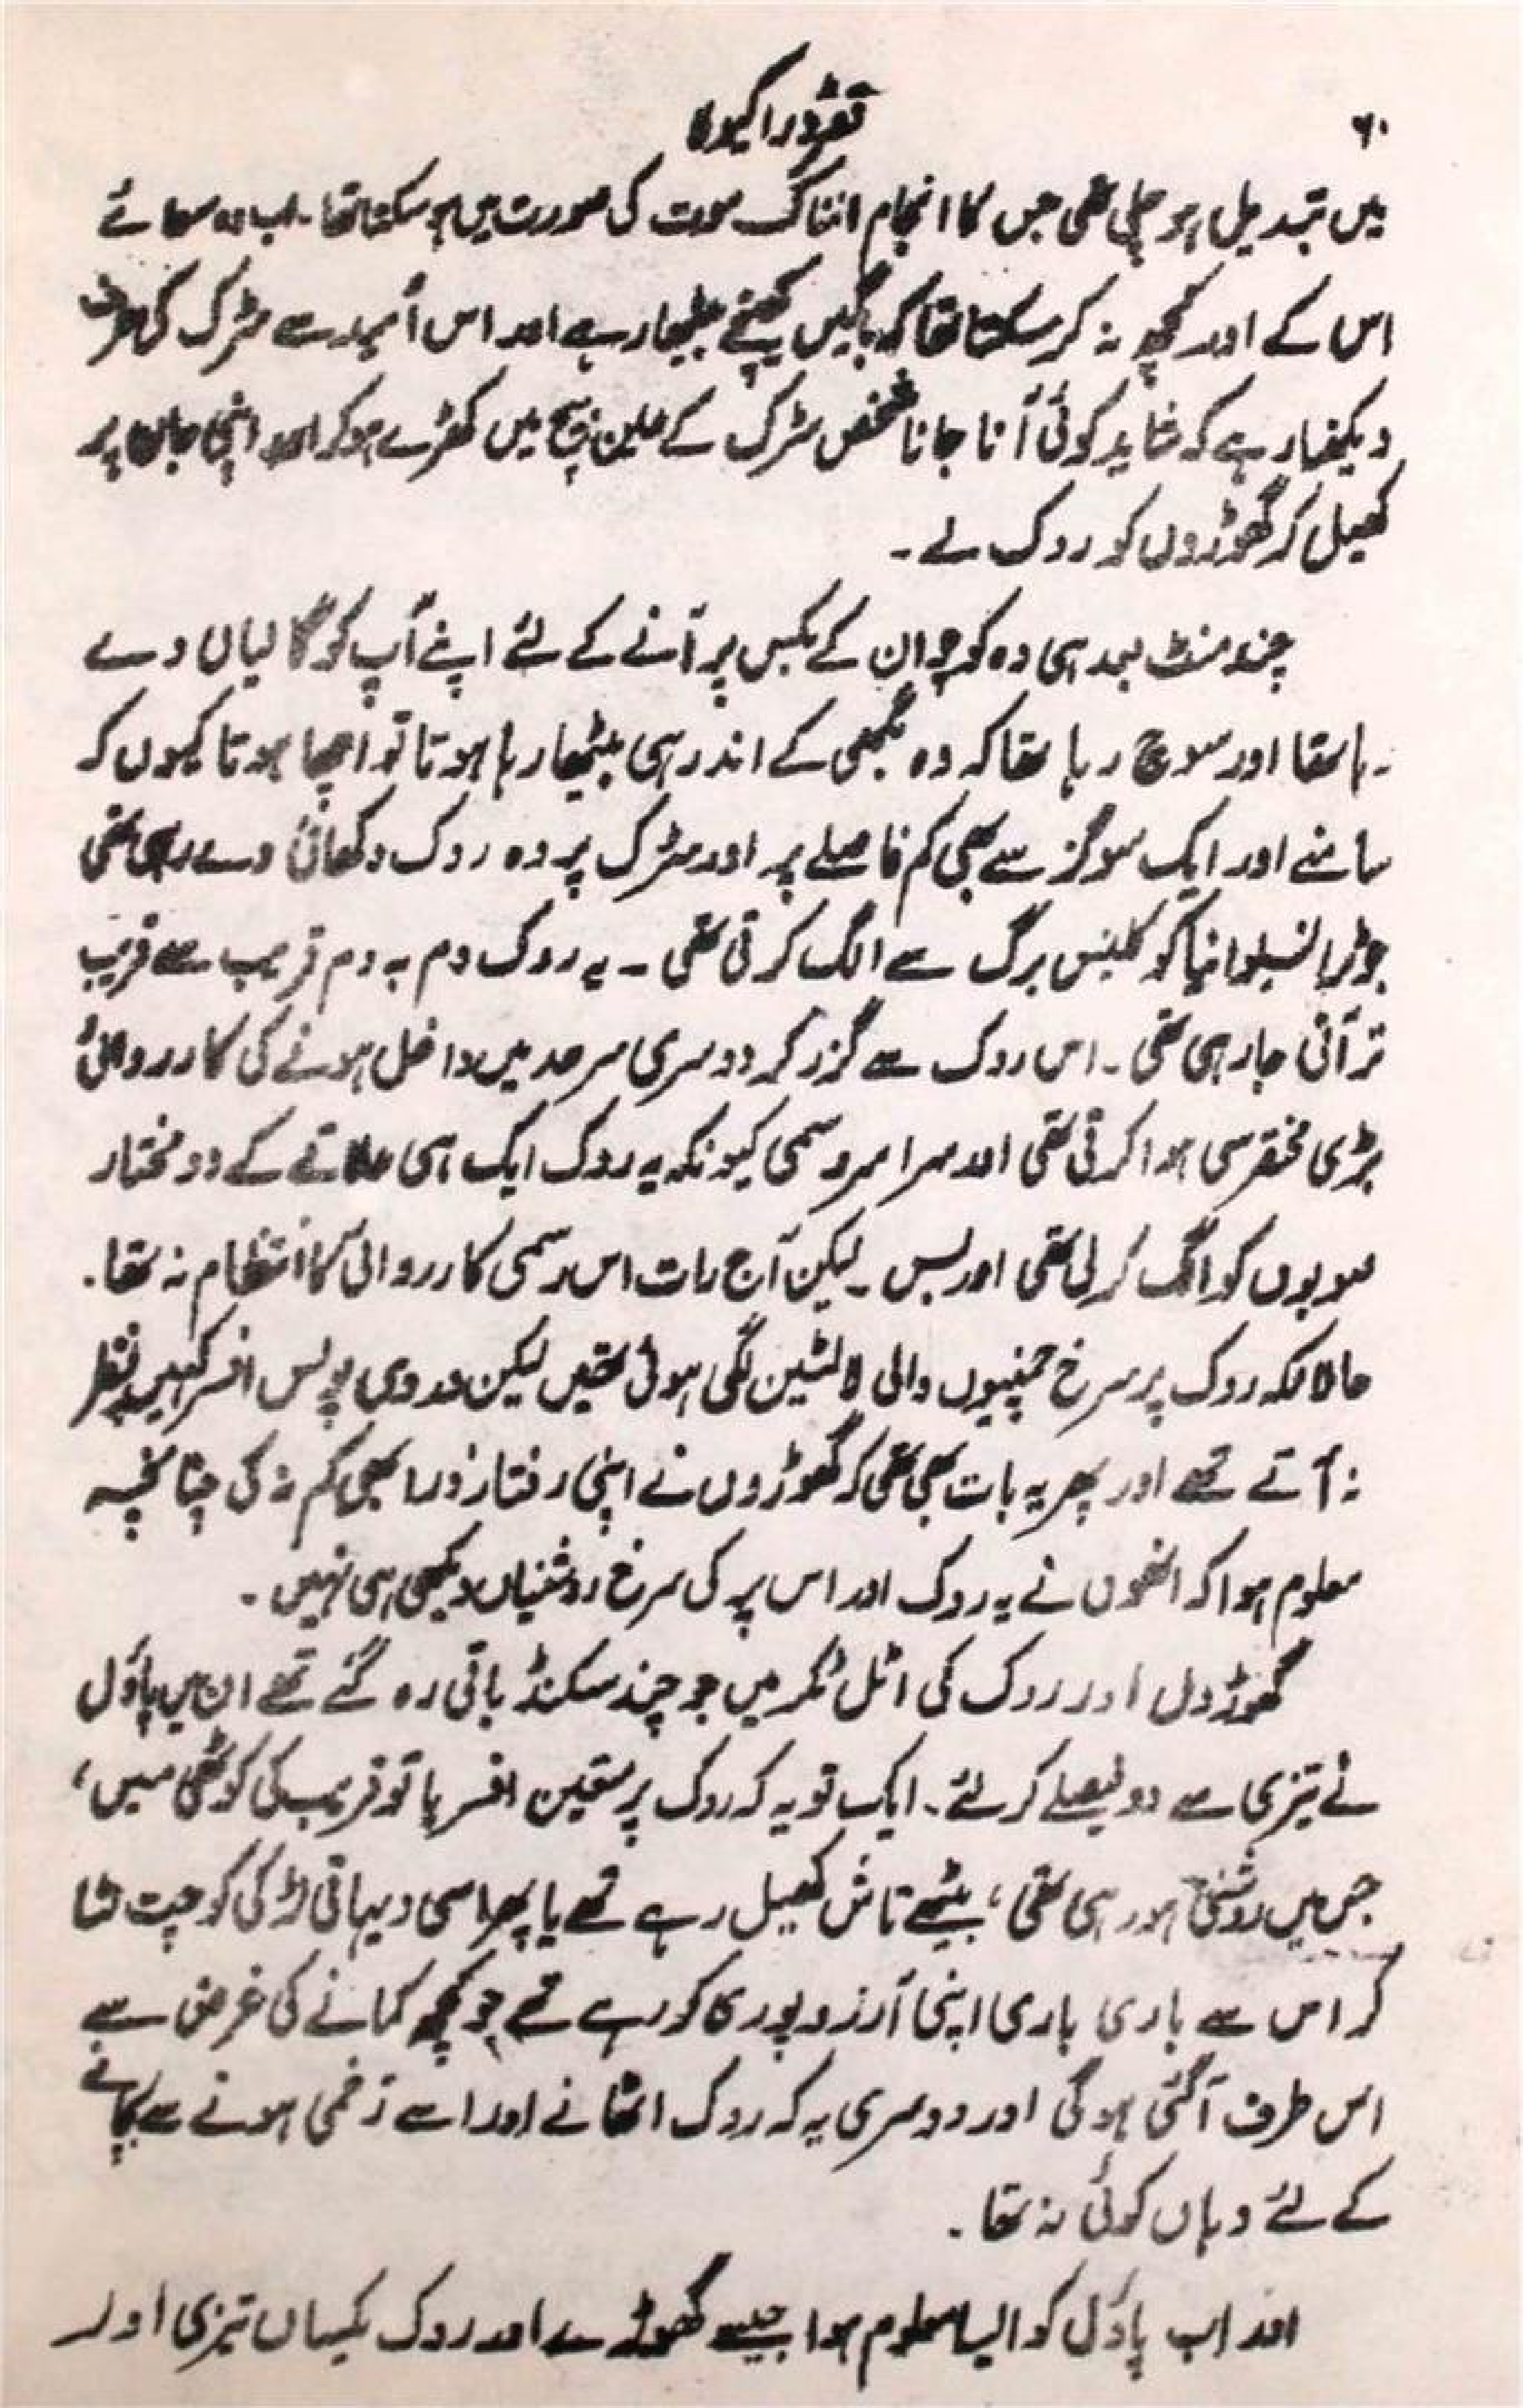 ۶۰
قہرِ ڈراکیولا
میں تبدیل ہو چلی تھی جس کا انجام المناک موت کی صورت میں ہو سکتا تھا۔ اب وہ سوائے
اس کے اور کچھ نہ کر سکتا تھا کہ باگیں کھینچے بیٹھا رہے اور اس اُمید سے سڑک کی طرف
دیکھتا رہے کہ شاید کوئی آتا جاتا شخص سڑک کے عین بیچ میں کھڑے ہو کر اور اپنی جان پر
کھیل کر گھوڑوں کو روک لے۔
چند منٹ بعد ہی وہ کوچوان کے بکس پر آنے کے لئے اپنے آپ کو گالیاں دے
رہا تھا اور سوچ رہا تھا کہ وہ بگھی کے اندر ہی بیٹھا رہا ہوتا تو اچھا ہوتا کیوں کہ
سامنے اور ایک سو گز سے بھی کم فاصلے پر اور سڑک پر وہ روک دکھائی دے رہی تھی
جو ٹرانسلوانیا کو کلینس برگ سے الگ کرتی تھی۔ یہ روک دم بہ دم قریب سے قریب
تر آتی جا رہی تھی۔ اس روک سے گزر کر دوسری سرحد میں داخل ہونے کی کارروائی
بڑی مختصر سی ہوا کرتی تھی اور سراسر رسمی کیونکہ یہ روک ایک ہی علاقے کے دو مختار
صوبوں کو الگ کرتی تھی اور بس۔ لیکن آج رات اس رسمی کارروائی کا انتظام نہ تھا۔
حالانکہ روک پر سرخ چمنیوں والی لالٹین لگی ہوئی تھیں لیکن وردی پولس افسر کہیں نظر
نہ آتے تھے اور پھر یہ بات بھی تھی کہ گھوڑوں نے اپنی رفتار ذرا بھی کم نہ کی چنانچہ
معلوم ہوا کہ انھوں نے یہ روک اور اس پر کی سرخ روشنیاں دیکھی ہی نہیں۔
گھوڑوں اور روک کی اٹل ٹکر میں جو چند سکنڈ باقی رہ گئے تھے ان میں پاؤل
نے تیزی سے دو فیصلے کر لئے۔ ایک تو یہ کہ روک پر متعین افسر یا تو قریب کی کوٹھی میں،
جس میں روشنی ہو رہی تھی، بیٹھے تاش کھیل رہے تھے یا پھر اسی دیہاتی لڑکی کو چت لٹا
کر اس سے باری باری اپنی آرزو پوری کر رہے تھے جو کچھ کمانے کی غرض سے
اس طرف آ گئی ہو گی اور دوسری یہ کہ روک اٹھانے اور اسے زخمی ہونے سے بچانے
کے لئے وہاں کوئی نہ تھا۔
اور اب پاؤل کو ایسا معلوم ہوا جیسے گھوڑے اور روک یکساں تیزی اور